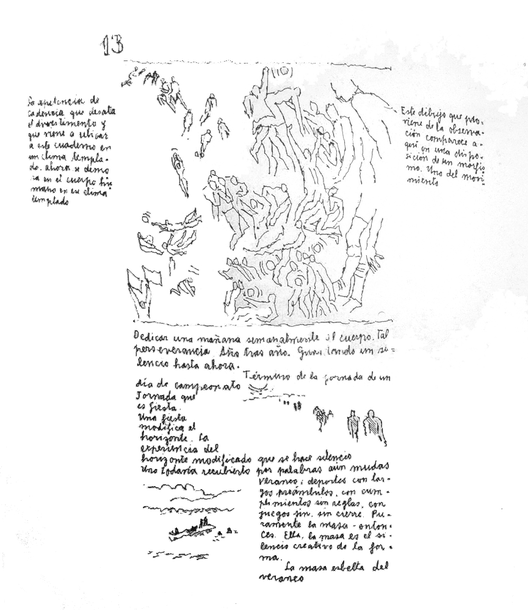 13
La apetencia de
cadencia que desata
el divertimento y
que viene a ubicar
a este cuaderno en
un clima templa-
do. ahora se demo
ra en el cuerpo hu
mano en su clima
templado
Este dibujo que pro-
viene de la observa-
ción comparece a-
quí en una dispo-
sición de un morfis
mo. Uno del movi
miento
Dedicar una mañana semanalmente al cuerpo. Tal
perseverancia año tras año. Guardando un si-
lencio hasta ahora.
Término de la jornada de un
día de campeonato
Jornada que
es fiesta.
Una fiesta
modifica el
horizonte. La
experiencia del
horizonte modificado que se hace silencio
Uno todavía recubierto por palabras aún mudas
Veraneo; deportes con lar-
gos preámbulos, con cum-
plimientos sin reglas, con
juegos sin, sin cierre. Pu-
ramente la masa - enton-
ces. Ella, la masa es el si-
lencio creativo de la for-
ma.
La masa esbelta del
veraneo